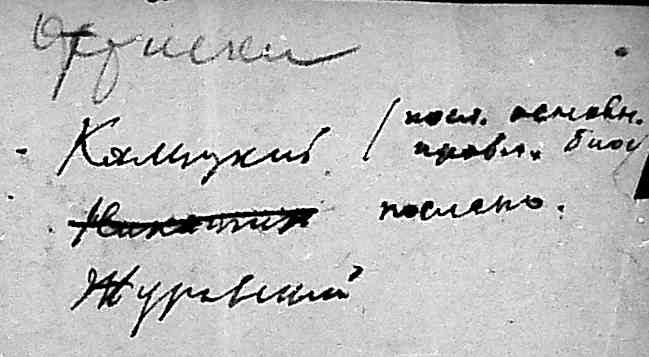 Оттиски
Камшукий (посл. основн.
провл. биос
Никитин послано.
Журавский